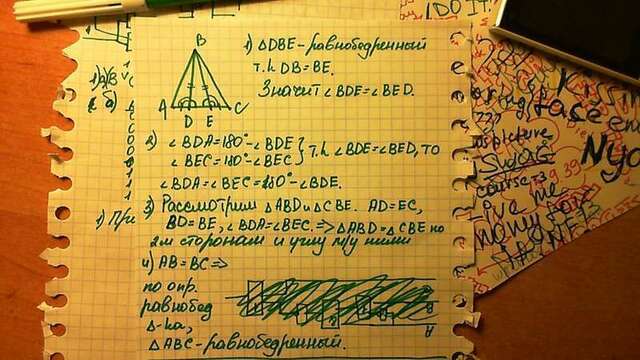 B
A D E C
1) ΔDBE - равнобедренный
т.к DB = BE.
Значит ∠BDE = ∠BED.
2) ∠BDA = 180° - ∠BDE
∠BEC = 180° - ∠BEC } т.к ∠BDE = ∠BED, то
∠BDA = ∠BEC = 180° - ∠BDE.
3) Рассмотрим ΔABD и ΔCBE. AD = EC,
BD = BE, ∠BDA = ∠BEC. => ΔABD = ΔCBE по
2м сторонам и углу м/у ними
4) AB = BC =>
по опр.
равнобед
Δ-ка,
ΔABC - равнобедренный.
1) Пр
IDO IT
face
Swag
course
give me
money for
Nya
39